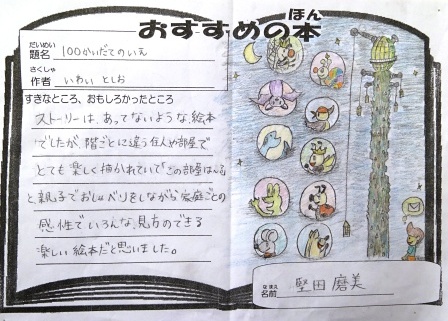 おすすめの本
ほん
だいめい
題名 100かいだてのいえ
さくしゃ
作者 いわい としお
すきなところ、おもしろかったところ
ストーリーは、あってないような、絵本
でしたが、階ごとに違う住人や部屋で
とても楽しく描かれていて「この部屋は〜」
と親子でおしゃべりをしながら家庭ごとの
感性でいろんな見方のできる
楽しい絵本だと思いました。
なまえ
名前 堅田 磨美